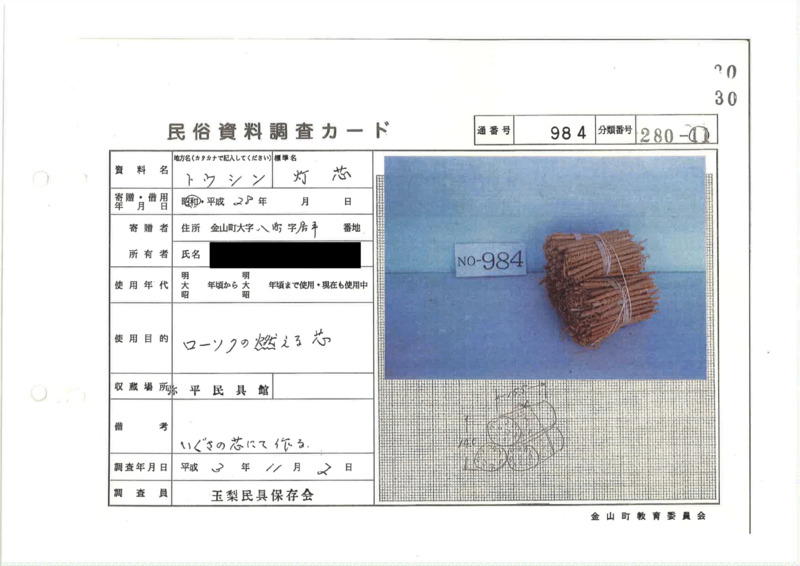 30
30
民俗資料調査カード
通番号 984 分類番号 280-11
資料名 地方名(カタカナで記入してください) トウシン 標準名 灯芯
寄贈・借用年月日 昭和・平成 28年 月 日
寄贈者 住所 金山町大字 八町 字居平 番地
所有者 氏名
使用年代 明大昭 年頃から 明大昭 年頃まで使用・現在も使用中
使用目的 ローソクの燃える芯
収蔵場所 弥平民具館
備考 いぐさの芯にて作る.
調査年月日 平成 3年 11月 2日
調査員 玉梨民具保存会
NO-984
15.5
14.0
金山町教育委員会